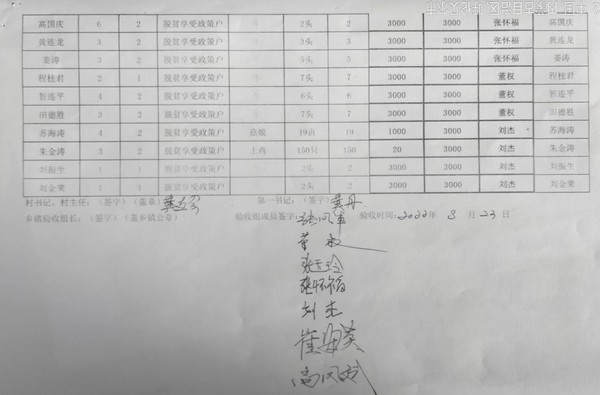 高国庆 6 2 脱贫享受政策户 2头 2 3000 3000 张怀福 高国庆
黄连龙 3 2 脱贫享受政策户 3头 3 3000 3000 张怀福 黄连龙
姜涛 3 2 脱贫享受政策户 5头 5 3000 3000 张怀福 姜涛
程桂君 2 1 脱贫享受政策户 7头 7 3000 3000 董权 程桂君
智连平 4 2 脱贫享受政策户 6头 6 3000 3000 董权 智连平
田德胜 3 2 脱贫享受政策户 7头 7 3000 3000 董权 田德胜
苏海涛 4 2 脱贫享受政策户 19亩 19 1000 3000 刘杰 苏海涛
朱金涛 3 2 脱贫享受政策户 土鸡 150只 150 20 3000 刘杰 朱金涛
刘振生 1 1 脱贫享受政策户 2头 2 3000 3000 刘杰 刘振生
刘金荣 1 1 脱贫享受政策户 2头 2 3000 3000 刘杰 刘金荣
村书记、村主任：（签字）（盖章） 第一书记：（签字）
乡镇验收组长：（签字）（盖乡镇公章） 验收组成员签字： 验收时间：2022年 8月 23日
董权
张玉玲
张怀福
刘杰
崔海英